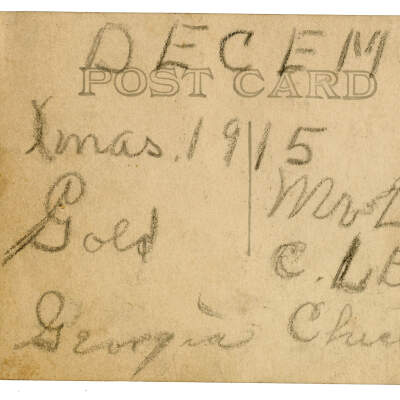 DECEM
POST CARD
Xmas. 1915
Gold
Georgia
Mr
C. L